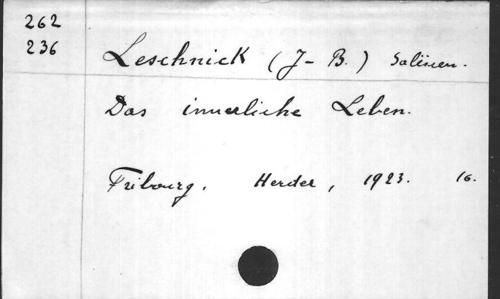 262
236
Leschnick (J- B.)
Das innerliche Leben.
Fribourg. Herder, 1923. 16.